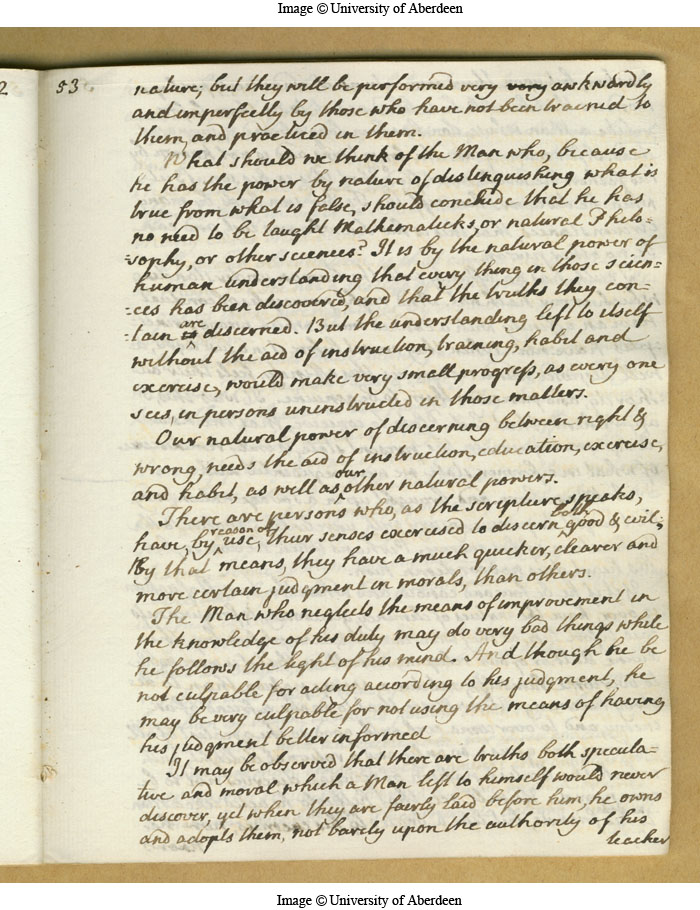 Image © University of Aberdeen
2
53
nature; but they will be performed very very awkwardly
and imperfectly by those who have not been trained to
them, and practiced in them.
What should we think of the Man who, because
he has the power by nature of distinguishing what is
true from what is false, should conclude that he has
no need to be taught Mathematicks, or natural Philo=
=sophy, or other sciences? It is by the natural power of
human understanding that every thing in those scien=
=ces has been discovered, and that the truths they con=
=tain are discerned. But the understanding left to itself
without the aid of instruction, training, habit and
exercise, would make very small progress, as every one
sees, in persons uninstructed in those matters.
Our natural power of discerning between right &
wrong, needs the aid of instruction, education, exercise,
and habit, as well as our other natural powers.
There are persons who, as the scripture speaks,
have, by reason of use, their senses exercised to discern both good & evil;
By that means, they have a much quicker, clearer and
more certain judgment in morals, than others.
The Man who neglects the means of improvement in
the knowledge of his duty may do very bad things while
he follows the light of his mind. And though he be
not culpable for acting according to his judgment, he
may be very culpable for not using the means of having
his judgment better informed
It may be observed that there are truths both specula=
tive and moral which a Man left to himself would never
discover, yet when they are fairly laid before him, he owns
and adopts them, not barely upon the authority of his
teacher
Image © University of Aberdeen